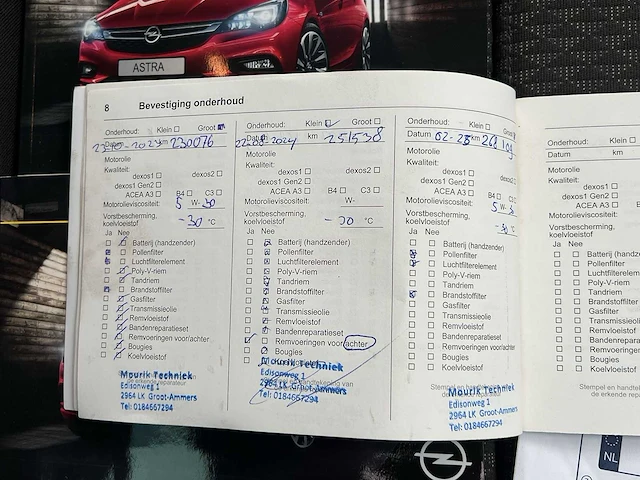 ASTRA
8 Bevestiging onderhoud
Onderhoud: Klein Groot
Datum 23-10-2023 km 230076
Motorolie
Kwaliteit:
dexos1 dexos2
dexos1 Gen2
ACEA A3 B4 C3
Motorolieviscositeit: 5 W-30
Vorstbescherming, koelvloeistof -30 °C
Ja Nee
Batterij (handzender)
Pollenfilter
Luchtfilterelement
Poly-V-riem
Tandriem
Brandstoffilter
Gasfilter
Transmissieolie
Remvloeistof
Bandenreparatieset
Remvoeringen voor/achter
Bougies
Koelvloeistof
de erkende reparateur
Mourik Techniek
Edisonweg 1
2964 LK Groot-Ammers
Tel: 0184667294
Onderhoud: Klein Groot
Datum 22-08-2024 km 251538
Motorolie
Kwaliteit:
dexos1 dexos2
dexos1 Gen2
ACEA A3 B4 C3
Motorolieviscositeit: W-
Vorstbescherming, koelvloeistof -30 °C
Ja Nee
Batterij (handzender)
Pollenfilter
Luchtfilterelement
Poly-V-riem
Tandriem
Brandstoffilter
Gasfilter
Transmissieolie
Remvloeistof
Bandenreparatieset
Remvoeringen voor/achter
Bougies
Mourik Techniek
Edisonweg 1
2964 LK Groot-Ammers
Tel: 0184667294
Onderhoud: Klein Groot
Datum 02-25 km
Motorolie
Kwaliteit:
dexos1 dexos2
dexos1 Gen2
ACEA A3 B4 C3
Motorolieviscositeit: 5 W-
Vorstbescherming, koelvloeistof -30 °C
Ja Nee
Batterij (handzender)
Pollenfilter
Luchtfilterelement
Poly-V-riem
Tandriem
Brandstoffilter
Gasfilter
Transmissieolie
Remvloeistof
Bandenreparatieset
Remvoeringen voor/achter
Bougies
Koelvloeistof
Stempel en
Mourik Techniek
Edisonweg 1
2964 LK Groot-Ammers
Tel: 0184667294
Onderhoud: Klein
Datum km
Motorolie
Kwaliteit:
dexos1
dexos1 Gen2
ACEA A3
Motorolieviscositeit:
Vorstbescherming, koelvloeistof
Ja Nee
Batterij (handzender)
Pollenfilter
Luchtfilterelement
Poly-V-riem
Tandriem
Brandstoffilter
Gasfilter
Transmissieolie
Remvloeistof
Bandenreparatieset
Remvoeringen
Bougies
Koelvloeistof
Stempel en
de erkende
NL